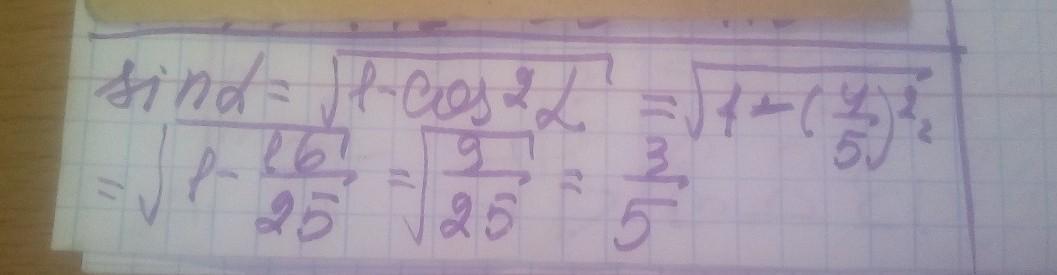 sin α = √(1 - cos² α) = √(1 - (4/5)²) =
= √(1 - 16/25) = √(9/25) = 3/5